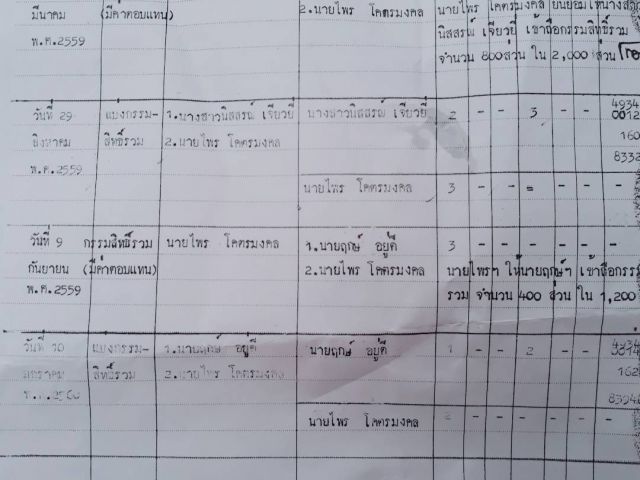 มีนาคม (มีค่าตอบแทน) 2.นายไพร โคตรมงคล นายไพร โคตรมงคล ยินยอมให้นางสาว
พ.ศ.2559 นิสสรณ์ เจียวยี่ เข้าถือกรรมสิทธิ์รวม
จำนวน 800ส่วน ใน 2,000 ส่วน
วันที่ 29 แบ่งกรรม- 1.นางสาวนิสสรณ์ เจียวยี่ นางสาวนิสสรณ์ เจียวยี่ 2 - - 3 - - 4934
0012
สิงหาคม สิทธิ์รวม 2.นายไพร โคตรมงคล 160
พ.ศ.2559 8332
นายไพร โคตรมงคล 3 - - - - -
วันที่ 9 กรรมสิทธิ์รวม นายไพร โคตรมงคล 1.นายฤกษ์ อยู่ดี 3 - - - - - -
กันยายน (มีค่าตอบแทน) 2.นายไพร โคตรมงคล นายไพรฯ ให้นายฤกษ์ฯ เข้าถือกรร
พ.ศ.2559 รวม จำนวน 400 ส่วน ใน 1,200
วันที่ 10 แบ่งกรรม- 1.นายฤกษ์ อยู่ดี นายฤกษ์ อยู่ดี 1 - - 2 - -
มกราคม สิทธิ์รวม 2.นายไพร โคตรมงคล 162
นายไพร โคตรมงคล - - - - -